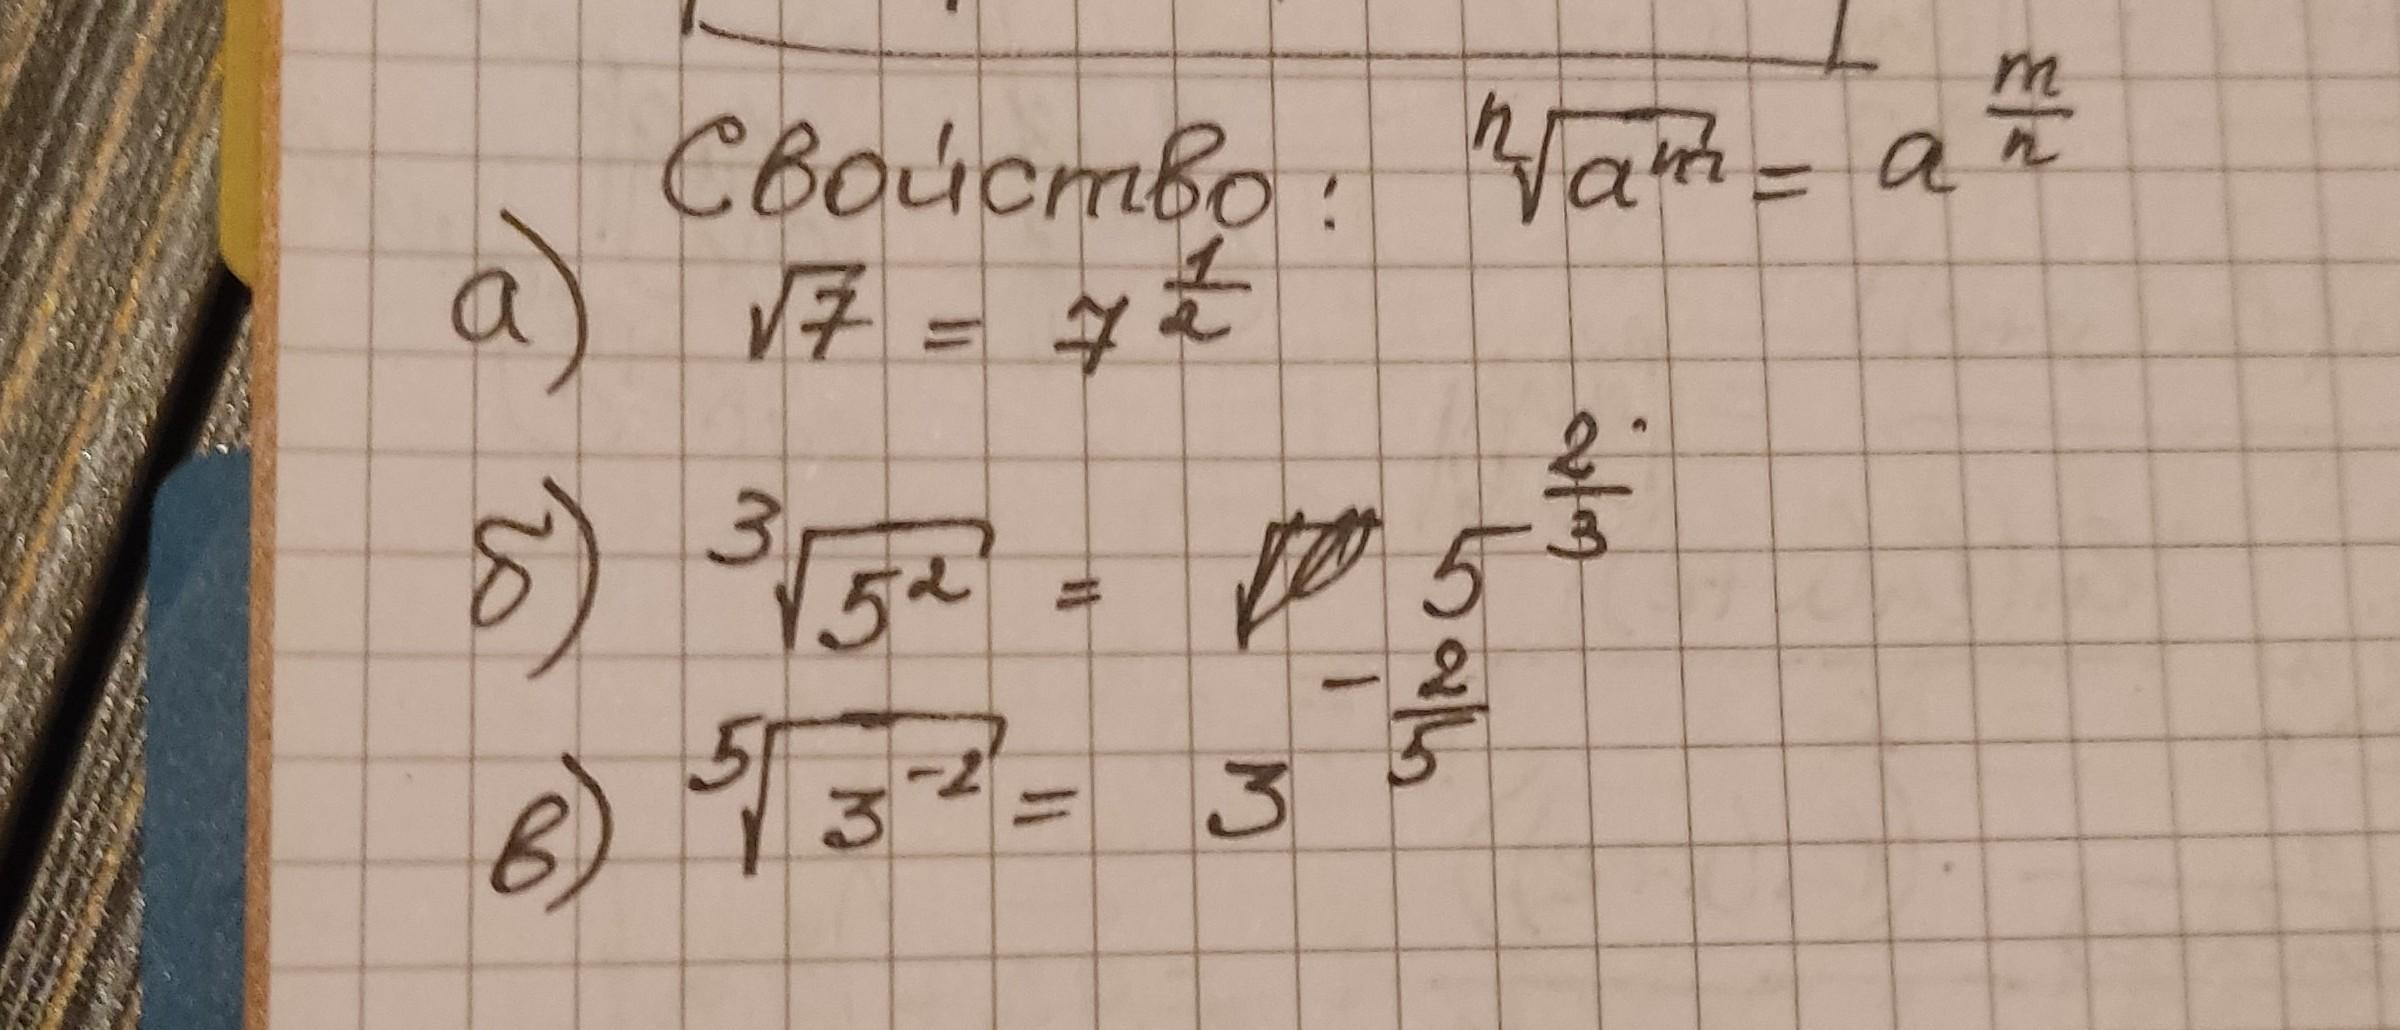 Свойство: ⁿ√(a^m) = a^(m/n)
а) √7 = 7^(1/2)
б) ³√(5²) = 5^(2/3)
в) ⁵√(3⁻²) = 3^(-2/5)